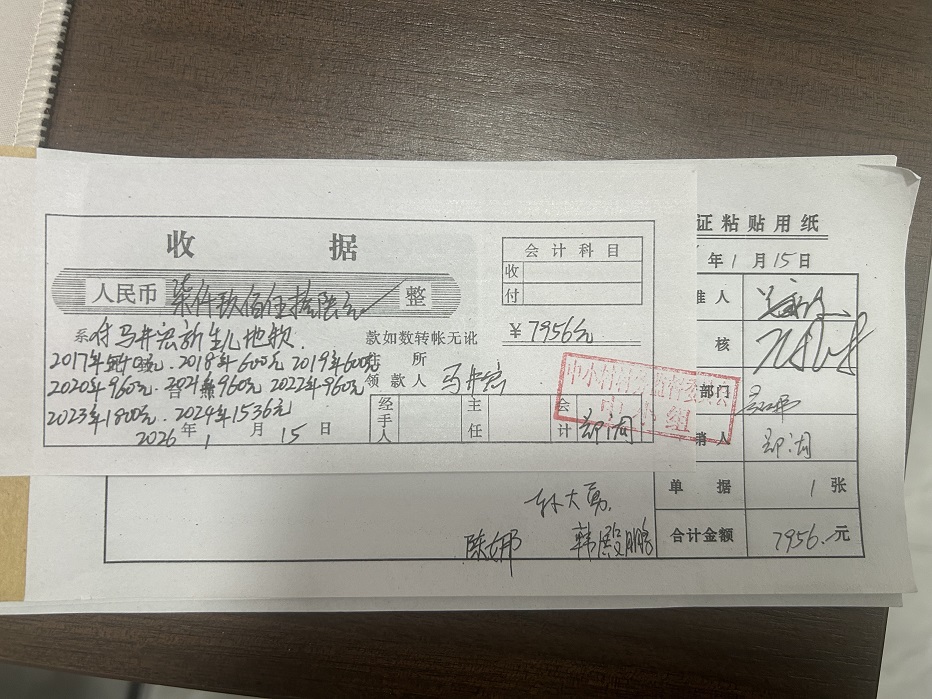 收 据
人民币 柒仟玖佰伍拾陆元 整
系付马井宏新生儿地款
款如数转帐无讹
2017年 2018年600元 2019年600元
所
2020年960元 2021年960元 2022年960元
领款人 马井宏
2023年1800元 2024年1536元
2026年1月15日
经手人
主任
会计 郑淘
会计科目
收
付
¥7956元
中小村村务监督委员会
中小组
证粘贴用纸
年1月15日
准人
核
部门
销人 郑淘
单据 1张
合计金额 7956.元
孙大勇
陈娜 韩殿鹏